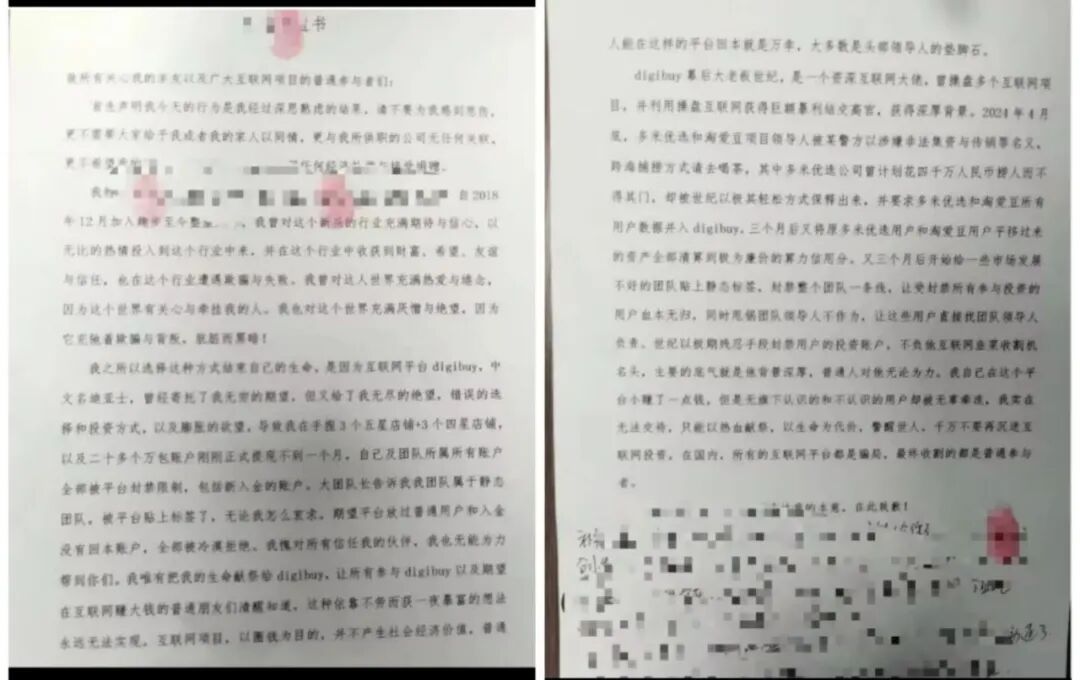 书
致所有关心我的亲友以及广大互联网项目的普通参与者们:
首先声明我今天的行为是我经过深思熟虑的结果,请不要为我感到悲伤,
更不需要大家给予我或者我的家人以同情,更与我所供职的公司无任何关联,
更不希望
任何经济
自2018
年12月加入 至今整 我曾对这个新兴的行业充满期待与信心,以
无比的热情投入到这个行业中来,并在这个行业中收获到财富、希望、友谊
与信任,也在这个行业遭遇欺骗与失败。我曾对这人世界充满热爱与眷念,
因为这个世界有关心与牵挂我的人。我也对这个世界充满厌憎与绝望,因为
它充弛着欺骗与背叛,肮脏而黑暗!
我之所以选择这种方式结束自己的生命,是因为互联网平台digibuy,中
文名迪亚士,曾经寄托了我无穷的期望,但又给了我无尽的绝望,错误的选
择和投资方式,以及膨胀的欲望,导致我在手握3个五星店铺+3个四星店铺,
以及二十多个万包账户刚刚正式提现不到一个月,自己及团队所属所有账户
全部被平台封禁限制,包括新入金的账户。大团队长告诉我我团队属于静态
团队,被平台贴上标签了,无论我怎么哀求,期望平台放过普通用户和入金
没有回本账户,全部被冷漠拒绝。我愧对所有信任我的伙伴,我也无能为力
帮到你们。我唯有把我的生命献祭给digibuy,让所有参与digibuy以及期望
在互联网赚大钱的普通朋友们清醒知道,这种依靠不劳而获一夜暴富的想法
永远无法实现。互联网项目,以圈钱为目的,并不产生社会经济价值,普通
人能在这样的平台回本就是万幸,大多数是头部领导人的垫脚石。
digibuy幕后大老板世纪,是一个资深互联网大佬,曾操盘多个互联网项
目,并利用操盘互联网获得巨额暴利结交高官,获得深厚背景。2024年4月
底,多米优选和淘爱豆项目领导人被某警方以涉嫌非法集资与传销罪名义,
跨海捕捞方式请去喝茶,其中多米优选公司曾计划花四千万人民币捞人而不
得其门,却被世纪以极其轻松方式保释出来,并要求多米优选和淘爱豆所有
用户数据并入digibuy,三个月后又将原多米优选用户和淘爱豆用户平移过来
的资产全部清算到极为廉价的算力信用分。又三个月后开始给一些市场发展
不好的团队贴上静态标签,封禁整个团队一条线,让受封禁所有参与投资的
用户血本无归,同时甩锅团队领导人不作为,让这些用户直接找团队领导人
负责。世纪以极期残忍手段封禁用户的投资账户,不负他互联网韭菜收割机
名头,主要的底气就是他背景深厚,普通人对他无论为力。我自己在这个平
台小赚了一点钱,但是无旗下认识的和不认识的用户却被无辜牵连,我实在
无法交待,只能以热血献祭,以生命为代价,警醒世人,千万不要再沉迷互
联网投资,在国内,所有的互联网平台都是骗局,最终收割的都是普通参与
者。
在此致歉!